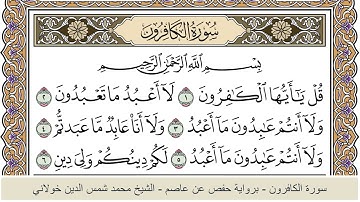 سورة الكافرون
بِسْمِ اللَّهِ الرَّحْمَٰنِ الرَّحِيمِ
قُلْ يَا أَيُّهَا الْكَافِرُونَ ١ لَا أَعْبُدُ مَا تَعْبُدُونَ ٢
وَلَا أَنتُمْ عَابِدُونَ مَا أَعْبُدُ ٣ وَلَا أَنَا عَابِدٌ مَّا عَبَدتُّمْ ٤
وَلَا أَنتُمْ عَابِدُونَ مَا أَعْبُدُ ٥ لَكُمْ دِينُكُمْ وَلِيَ دِينِ ٦
سورة الكافرون - برواية حفص عن عاصم - الشيخ محمد شمس الدين خولاني